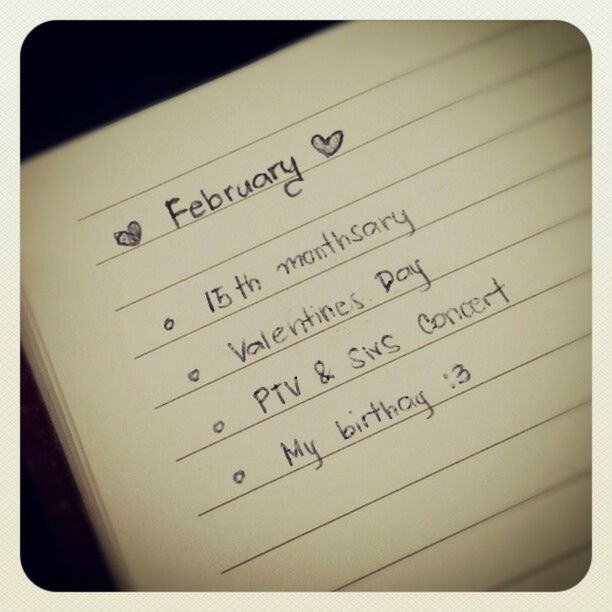 ♥ February ♥
• 15th monthsary
• Valentines Day
• PTV & SWS Concert
• My birthay :3